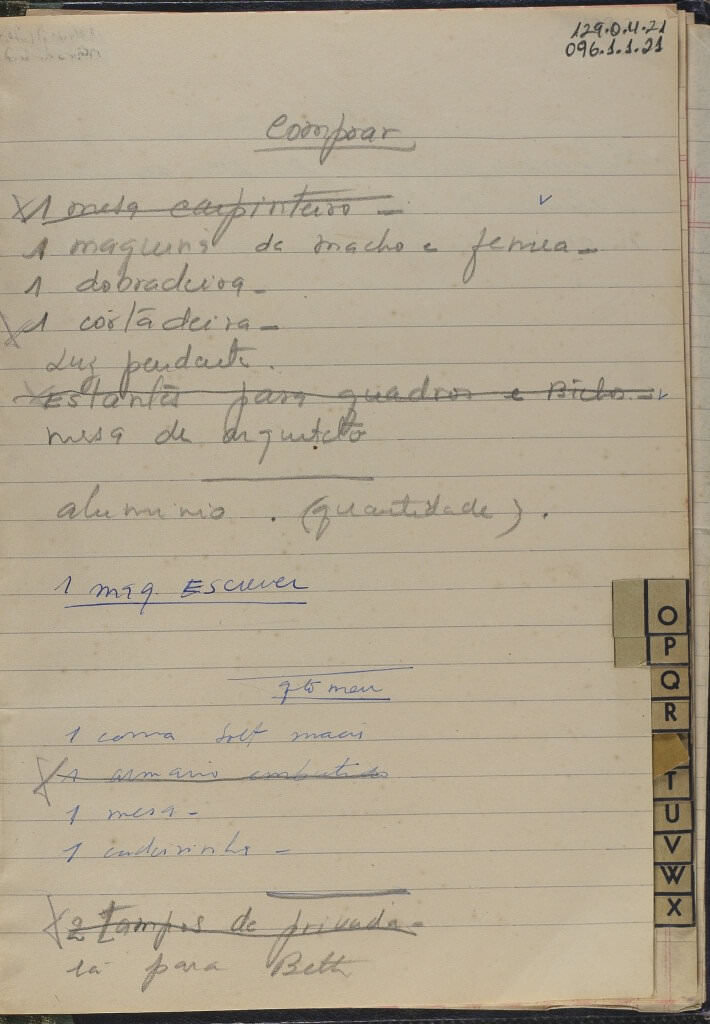 129.0.4.21
096.1.1.21
Comprar
1 mesa carpinteiro -
1 maquina de macho e femea -
1 dobradeira -
1 cortadeira -
Luz pendente.
Estantes para quadros e Bichos -
mesa de arquiteto
aluminio. (quantidade).
1 maq. Escrever
qto meu
1 cama solt
1 armario embutido
1 mesa -
1 cadeirinha -
2 Tampos de privada -
lã para Beth
O
P
Q
R
T
U
V
W
X